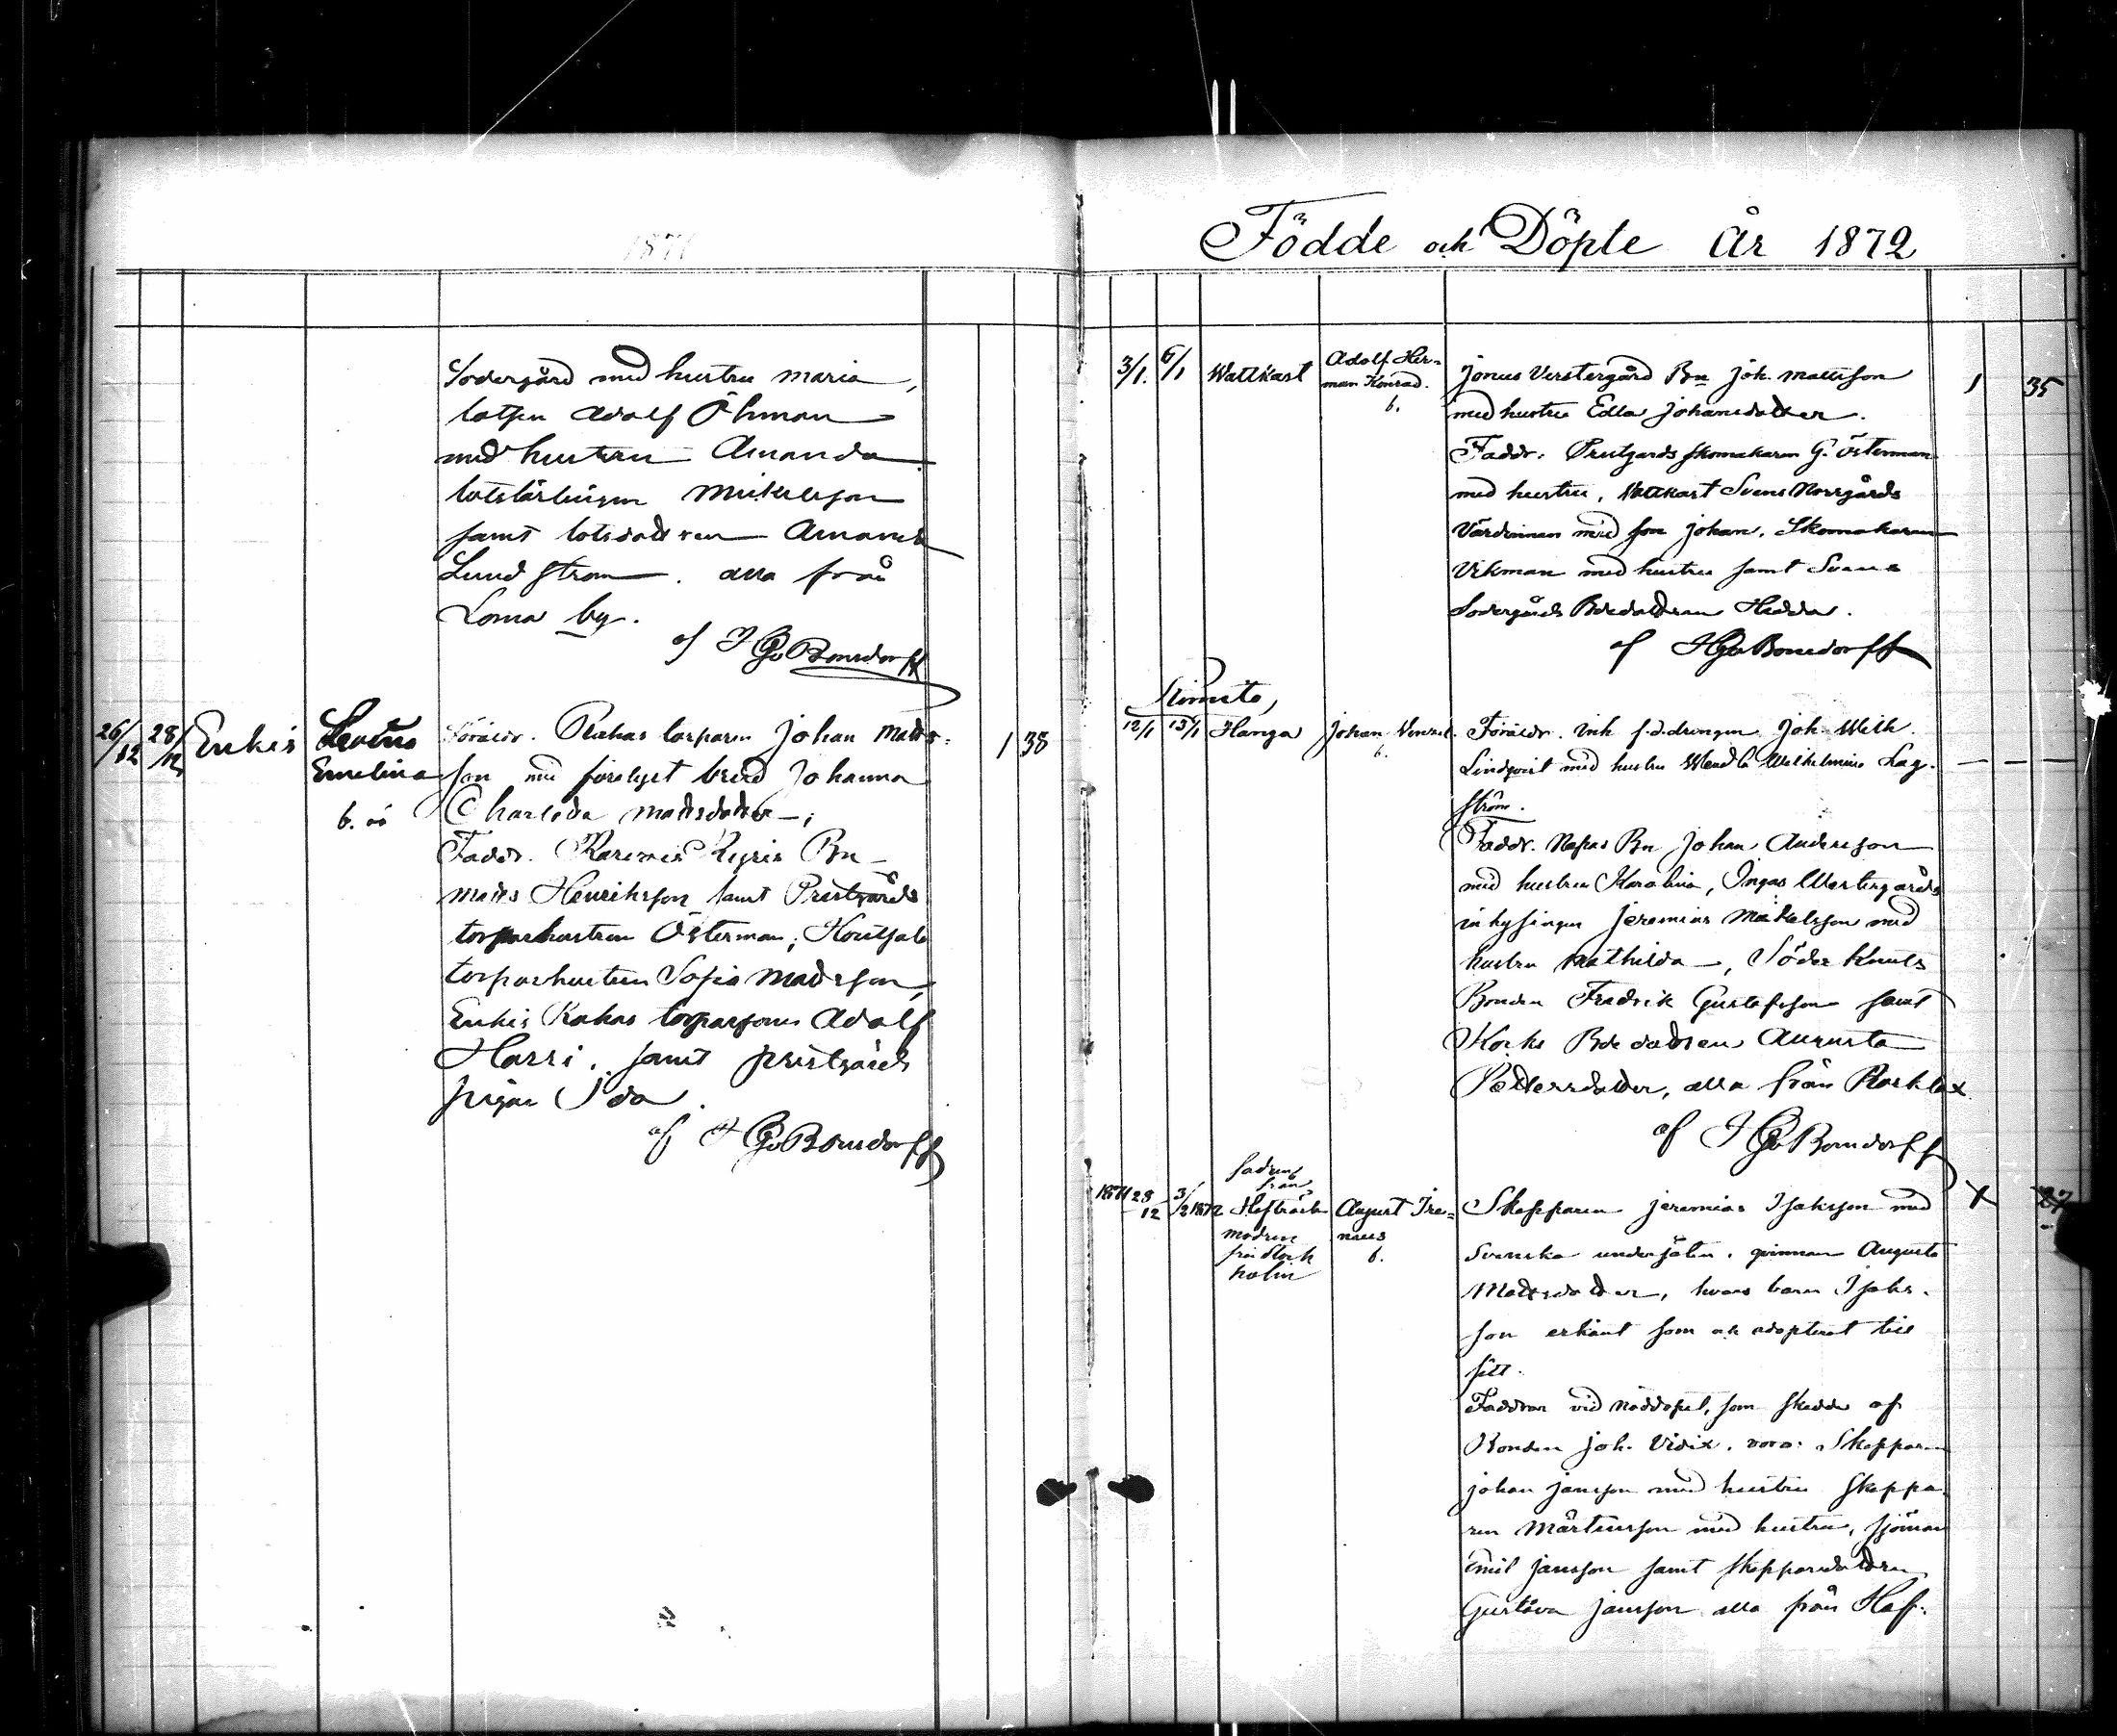 1871
Södergård med hustru Maria,
lotsen Adolf Öhman
med hustru Amanda
lotslärlingen Mickelsson
samt lotsdottren Amanda
Lundström. alla från
Loma by.
af H G v Bonsdorff
26/12 28/12 Enkis
Emelina
b. oä
Föräldr. Rahas torparen Johan Matts=
son med förelyst brud Johanna
Charlotta Mattsdotter;
Faddr. Bn
Matts Henriksson samt Prestgårds
torparhustrun Österman;
torparhustrun Sofia Madsson,
Enkis Rahas torparsonen Adolf
Harri. samt prestgårds
pigan Ida.
af H G v Bonsdorff
1 38
Födde och Döpte År 1872
3/1. 6/1 Wattkast
Adolf Her=
man Konrad.
b.
Jonus Verstergård Bn Joh. Mattsson
med hustru Edla Johansdotter.
Faddr. Prestgårds skomakaren G. Österman
med hustru, Wattkast Svens Norrgårds
Värdinnan med son Johan. Skomakaren
Vikman med hustru samt Svens
Södergårds Bdedottren Hedda.
af H G v Bonsdorff
1 35
Kimito,
12/1 13/1 Hanga
Johan
b.
Föräldr. inh. f.d. drengen Joh. Wilh.
Lindqvist med hustru Wendla Wilhelmina Lag-
ström.
Faddr. Bn Johan Andersson
med hustru Karolina, Ingas Westergårds
inhysingen Jeremias Mickelsson med
hustru Mathilda, Söder Knuts
Bonden Fredrik Gustafsson samt
Korks Bdedottren Augusta
Pettersdotter, alla från
af H G v Bonsdorff
1871 28/12 3/2 1872
fadren
från
modren
från Stock
holm
August Ire=
naeus
b.
Skepparen Jeremias Isaksson med
Svenska undersåten, qvinnan Augusta
Mattsdotter, hvars barn Isaks-
son erkänt som och adopterat till
sitt.
Faddrar vid nöddopet, som skedde af
Bonden Joh. voro: Skepparen
Johan Jansson med hustru Skeppa-
ren Mårtensson med hustru, sjöman
Emil Jansson samt skepparedottren
Gustava Jansson alla från Haf-